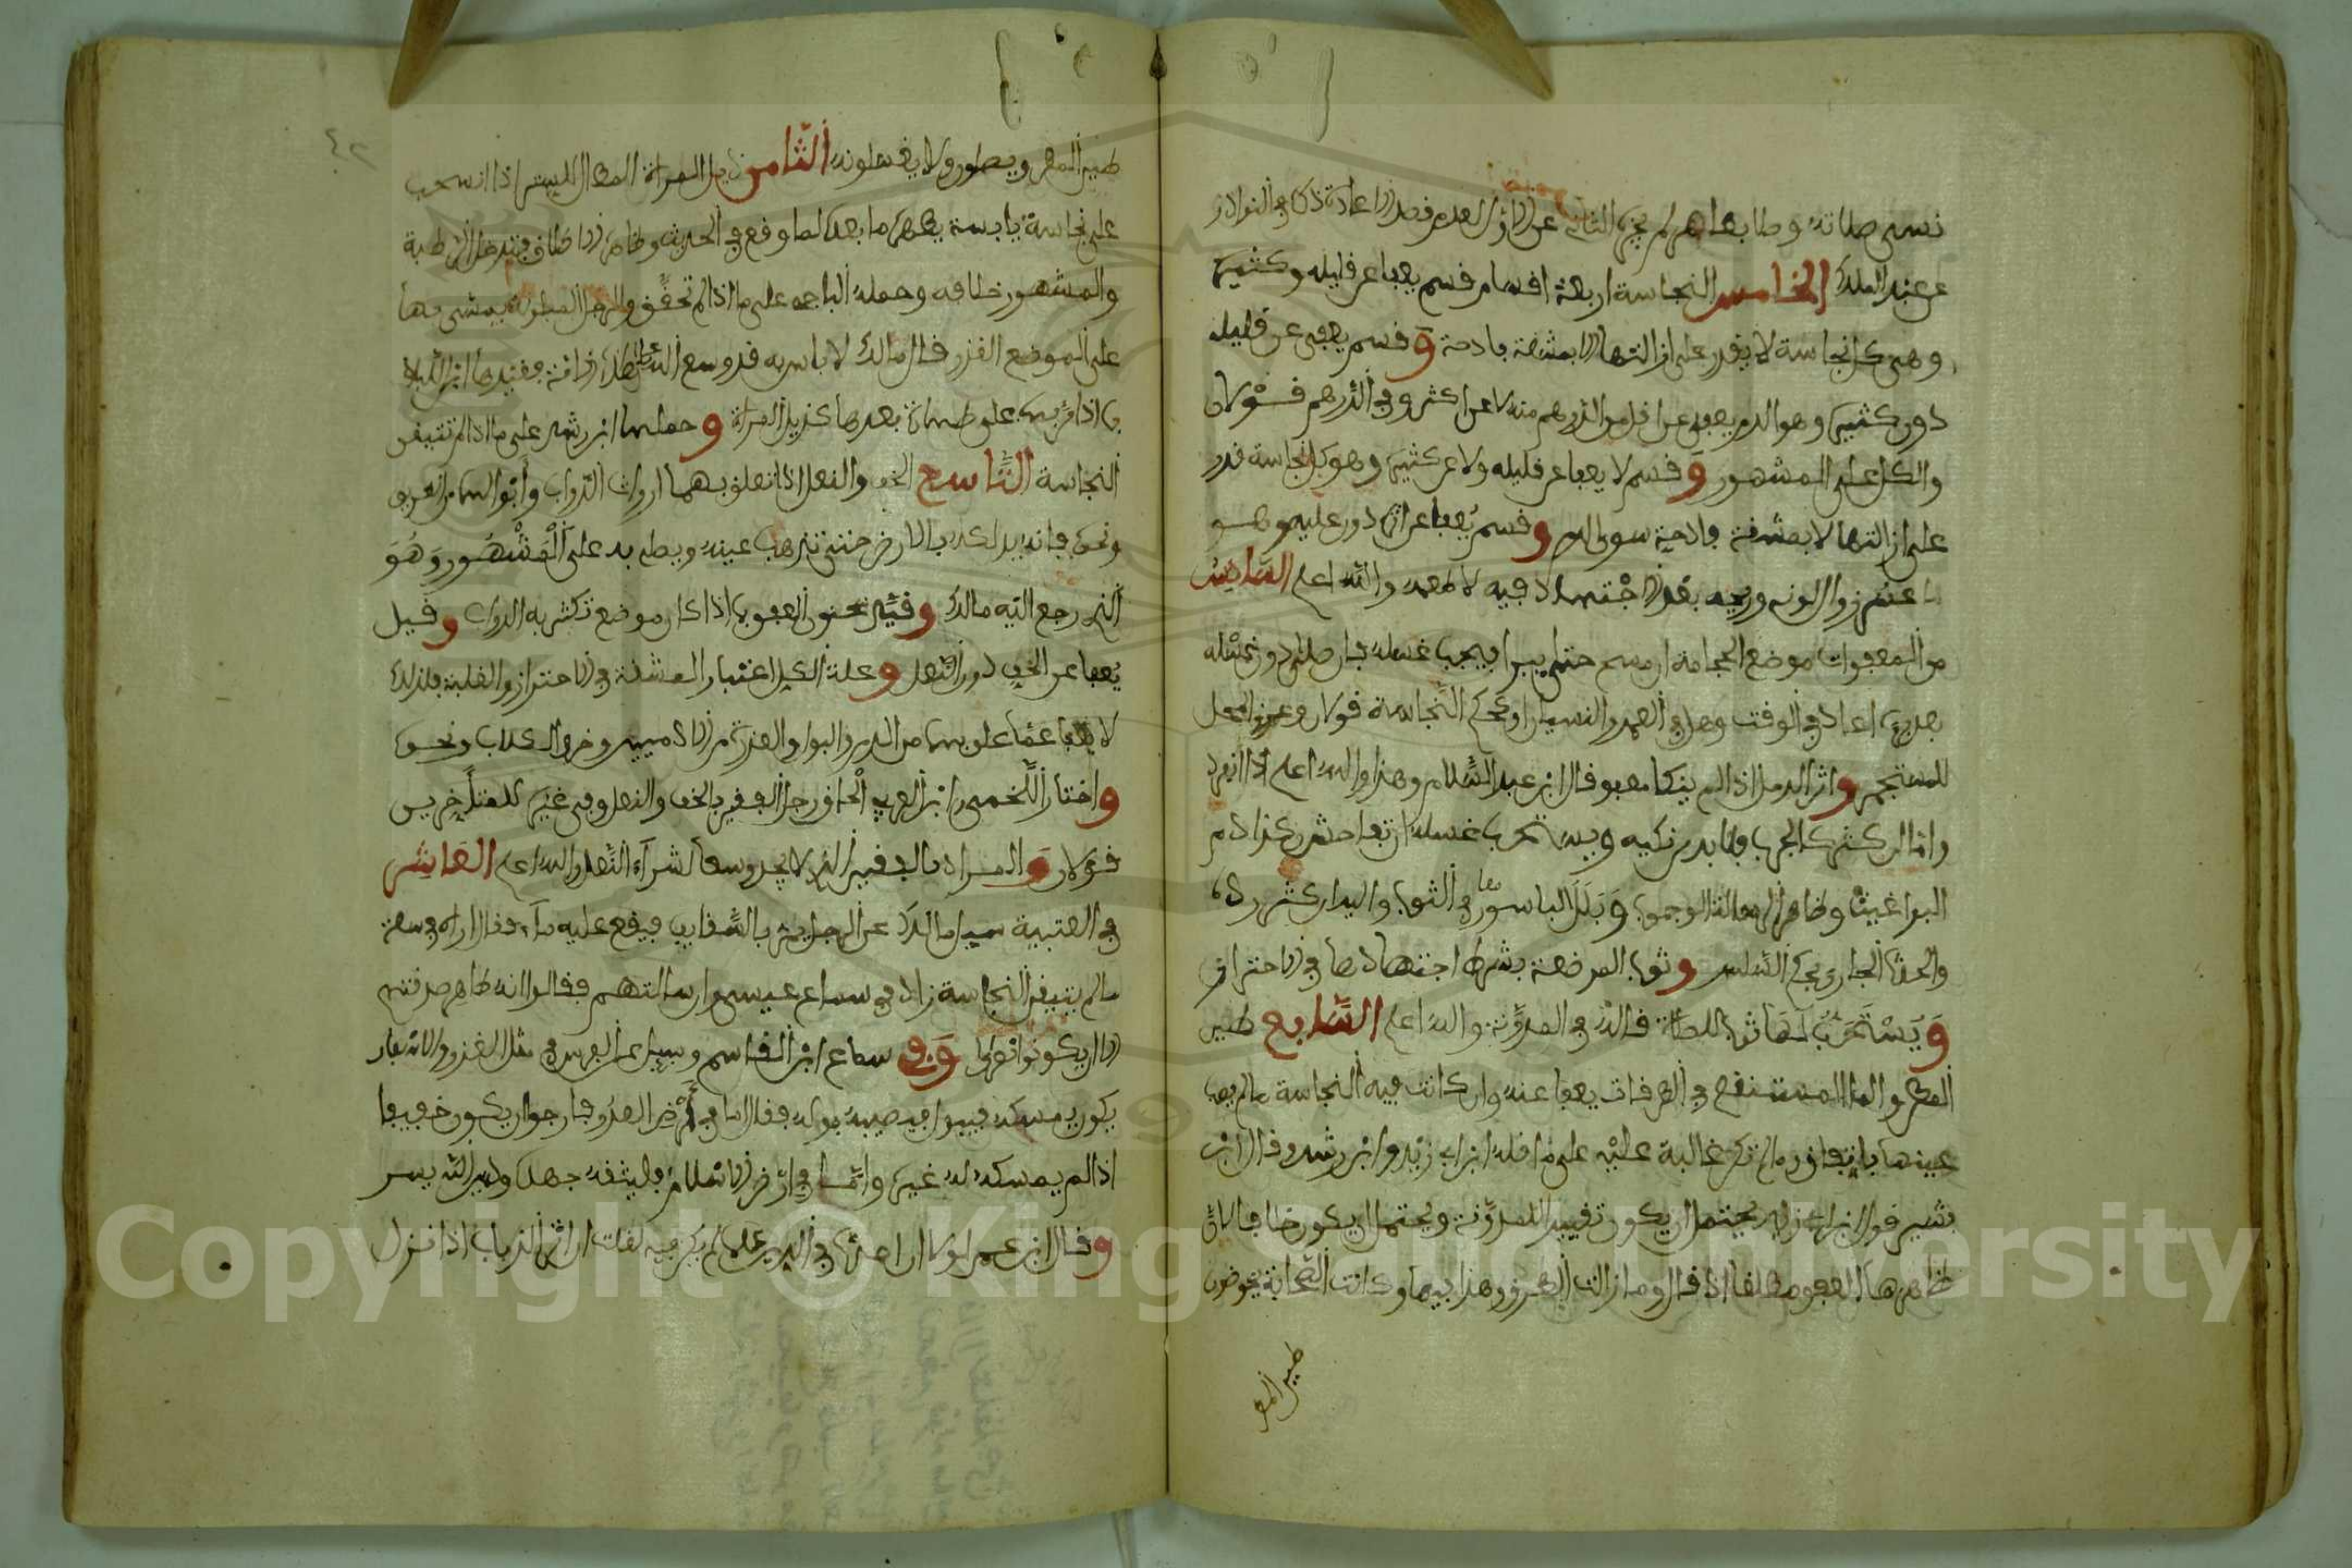 نسى صلاته وطابعاهر لم يجزه الثاني عن الاول لعدم قصد الاعادة ذكره في النوادر
عن عبد الملك الخامس النجاسة اربعة اقسام قسم يعفا عن قليله وكثيره
وهى كل نجاسة لا يقدر على ازالتها الا بمشقة فادحة وقسم يعفى عن قليله
دون كثيره وهو الدم يعفى عن اقل من الدرهم منه لا عن اكثر وفي الدرهم قولان
والكل على المشهور وقسم لا يعفا عن قليله ولا عن كثيره وهو كل نجاسة قدر
على ازالتها لا بمشقة فادحة سوى الدم وقسم يعفا عن اثره دون عينه وهو
ما عسر زوال لونه وريحه بقدر الاجتهاد فيه لا طعمه والله اعلم السادس
من المعفوات موضع الحجامة ان مسح حتى يبرا فيجب غسله فان صلى دون غسله
بعد برءه اعاد في الوقت وهل في العمد والنسيان او بحكم النجاسة قولان وعرق المحل
للمستجمر واثر الدمل اذا لم ينكا معفو قال ابن عبد السلام وهذا والله اعلم اذا انفرد
واما ان كثر كالجرب فلا بد من نكيه ويستحب غسله ان تفاحش وكذا دم
البراغيث وظاهر الرسالة الوجوب وبلل الباسور في الثوب واليد ان كثر رده
والحدث الجاري بحكم السلس وثوب المرضعة بشرط اجتهادها في الاحتراز
ويستحب لها ثوب للصلاة قاله في المدونة والله اعلم السابع طين
المطر والماء المستنقع في الطرقات يعفا عنه وان كانت فيه النجاسة ما لم يصب
عينها باتفاق وما لم تكن غالبة عليه على ما نقله ابن ابي زيد وابن رشد وقال ابن
بشير قول ابن ابي زيد يحتمل ان يكون تفسيرا للمدونة ويحتمل ان يكون خلافا لان
ظاهرها العفو مطلقا اذ قال وما زالت الطرق وهذا فيها وكانت الصحابة يخوضون
طين المطر
طين المطر ويصلون ولا يغسلونه الثامن ذيل المراة المطال للستر اذا انسحب
على نجاسة يابسة يطهره ما بعده لما وقع في الحديث وظاهره الاطلاق فتدخل الرطبة
والمشهور خلافه وحمله الباجي على ما اذا لم تحقق والرجل المبلولة يمشي بها
على الموضع القذر قال مالك لا باس به قد وسع الله على هذه الامة فقيدها ابن اللباد
بما اذا مر بها على طهارة بعدها كذيل المراة وحملها ابن رشد على ما اذا لم تتيقن
النجاسة التاسع الخف والنعل اذا تعلق بهما ارواث الدواب وابوالها من الطريق
ونحوه فانه يدلكه بالارض حتى تذهب عينه ويصلي به على المشهور وهو
الذي رجع اليه مالك وقيد سحنون العفو بما اذا كان موضع تكثر به الدواب وقيل
يعفا عن الخف دون النعل وعلة الكل اعتبار المشقة في الاحتراز والغلبة فلذلك
لا يعفا عما علق بها من الدم والبول والعذرة من الادميين وخرء الكلاب ونحوه
واختار اللخمي وابن العربي الحاق رجل الفقير بالخف والنعل وفي غيره للمتاخرين
قولان والمراد بالفقير الذي لا يجد وسعا لشراء النعل والله اعلم العاشر
في العتبية سيل مالك عن الرجل يمر بالسقايف فيقع عليه ماء فقال اراه في سعة
ما لم يتيقن النجاسة زاد في سماع عيسى وان سالتهم فقالوا انه طاهر صدقتهم
الا ان يكونوا نصارى وفي سماع ابن القاسم وسيل عن الفرس في مثل الغزو والاسفار
يكون يمسكه فيبول فيصيبه بوله فقال اما في ارض العدو فارجوا ان يكون خفيفا
اذا لم يمسكه له غيره واما في ارض الاسلام فليتقه جهده ودين الله يسر
وقال ابن عمر لولا ان احدث في الدين علما لم يكن فيه لقلت ان اثر الذباب اذا نزل